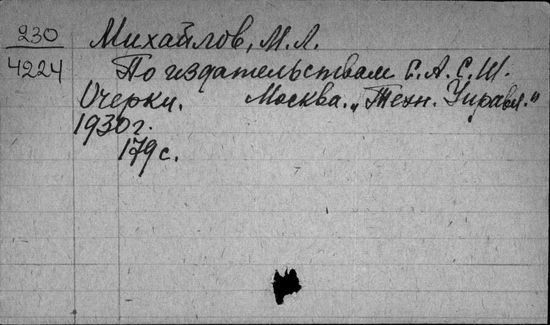 230
4224
Михайлов, М.Л.
По издательствам С.А.С.Ш.
Очерки. Москва. „Техн. Управл."
1930 г.
179 с.